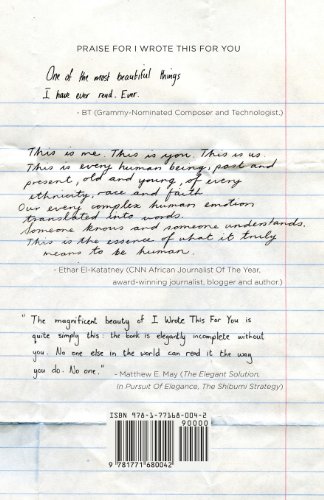 PRAISE FOR I WROTE THIS FOR YOU
One of the most beautiful things
I have ever read. Ever.
- BT (Grammy-Nominated Composer and Technologist.)
This is me. This is you. This is us.
This is every human being, past and
present, old and young, of every
ethnicity, race and faith
Our every complex human emotion
translated into words.
Someone knows and someone understands.
This is the essence of what it truly
means to be human.
- Ethar El-Katatney (CNN African Journalist Of The Year,
award-winning journalist, blogger and author.)
"The magnificent beauty of I Wrote This For You is
quite simply this: the book is elegantly incomplete without
you. No one else in the world can read it the way
you do. No one."
- Matthew E. May (The Elegant Solution,
In Pursuit Of Elegance, The Shibumi Strategy)
ISBN 978-1-77168-004-2
90000
9 781771 680042